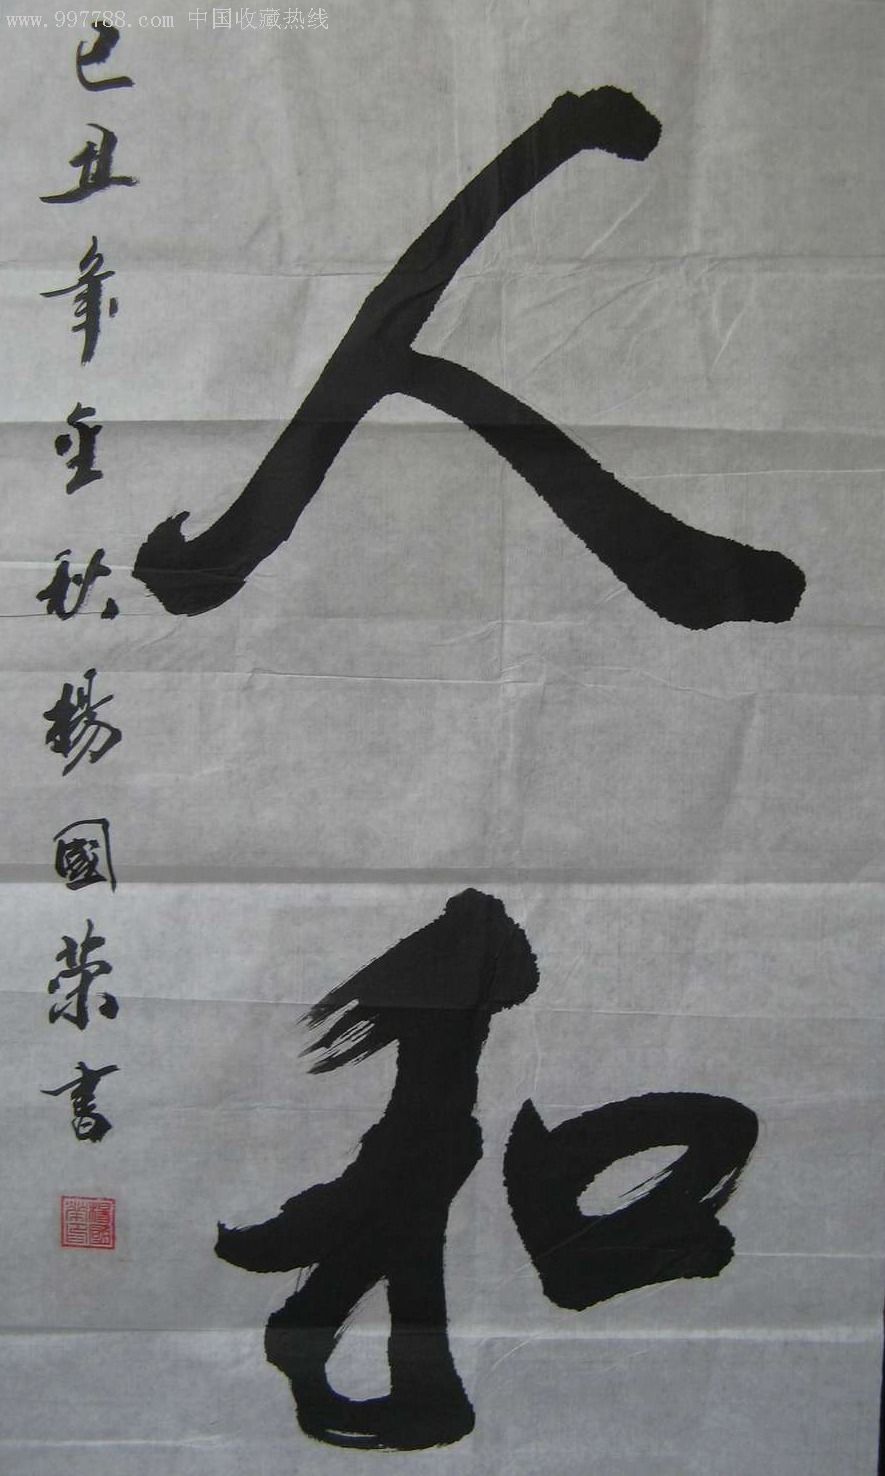 www.997788.com 中国收藏热线
人和
己丑年金秋楊國榮書